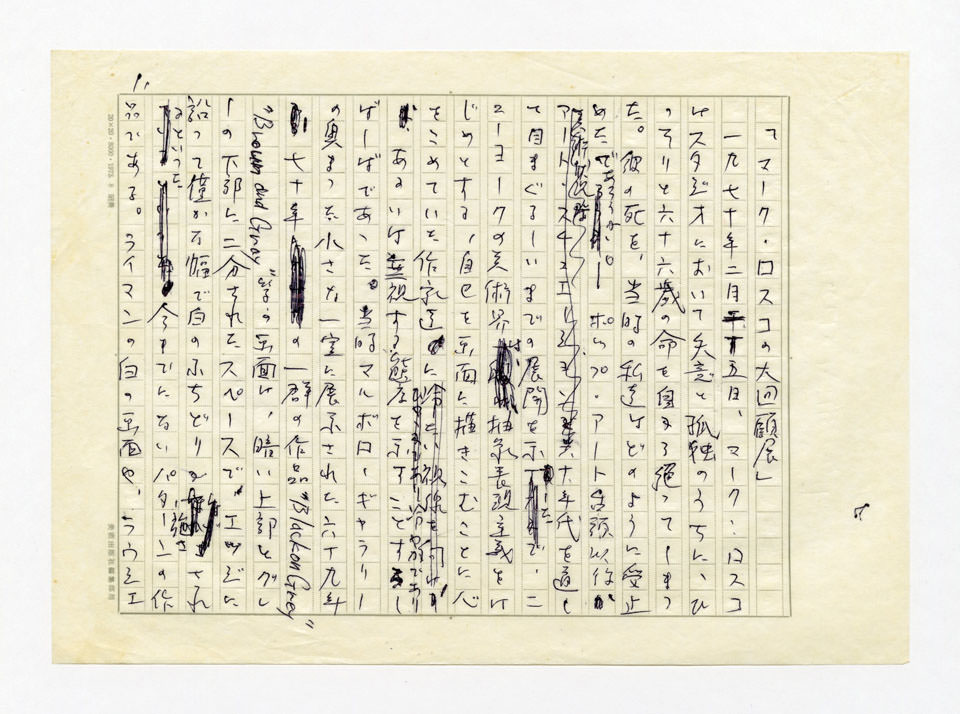 「マーク・ロスコの大回顧展」
一九七十年二月二十五日、マーク・ロスコ
はスタジオにおいて失意と孤独のうちに、ひ
っそりと六十六歳の命を自ら絶ってしまっ
た。彼の死を、当時の私達はどのように受止
めたであろうか。ポップ・アート台頭以後
六十年代を通し
て目まぐるしいまでの展開を示した、ニ
ューヨークの美術界は抽象表現主義をは
じめとする、自己を画面に描きこむことに心
をこめていた作家達に
あるいは無視する態度を示すことすらし
ばしばであった。当時マルボロー・ギャラリー
の奥まった小さな一室に展示された六十九年
七十年の一群の作品"Black on Gray"
"Brown and Gray"等の画面は、暗い上部とグレ
ーの下部に二分されたスペースで、エッジに
沿って僅かな幅で白のふちどりが施され
今までにないパターンの作
品である。ライマンの白の画面や、ラウシェ